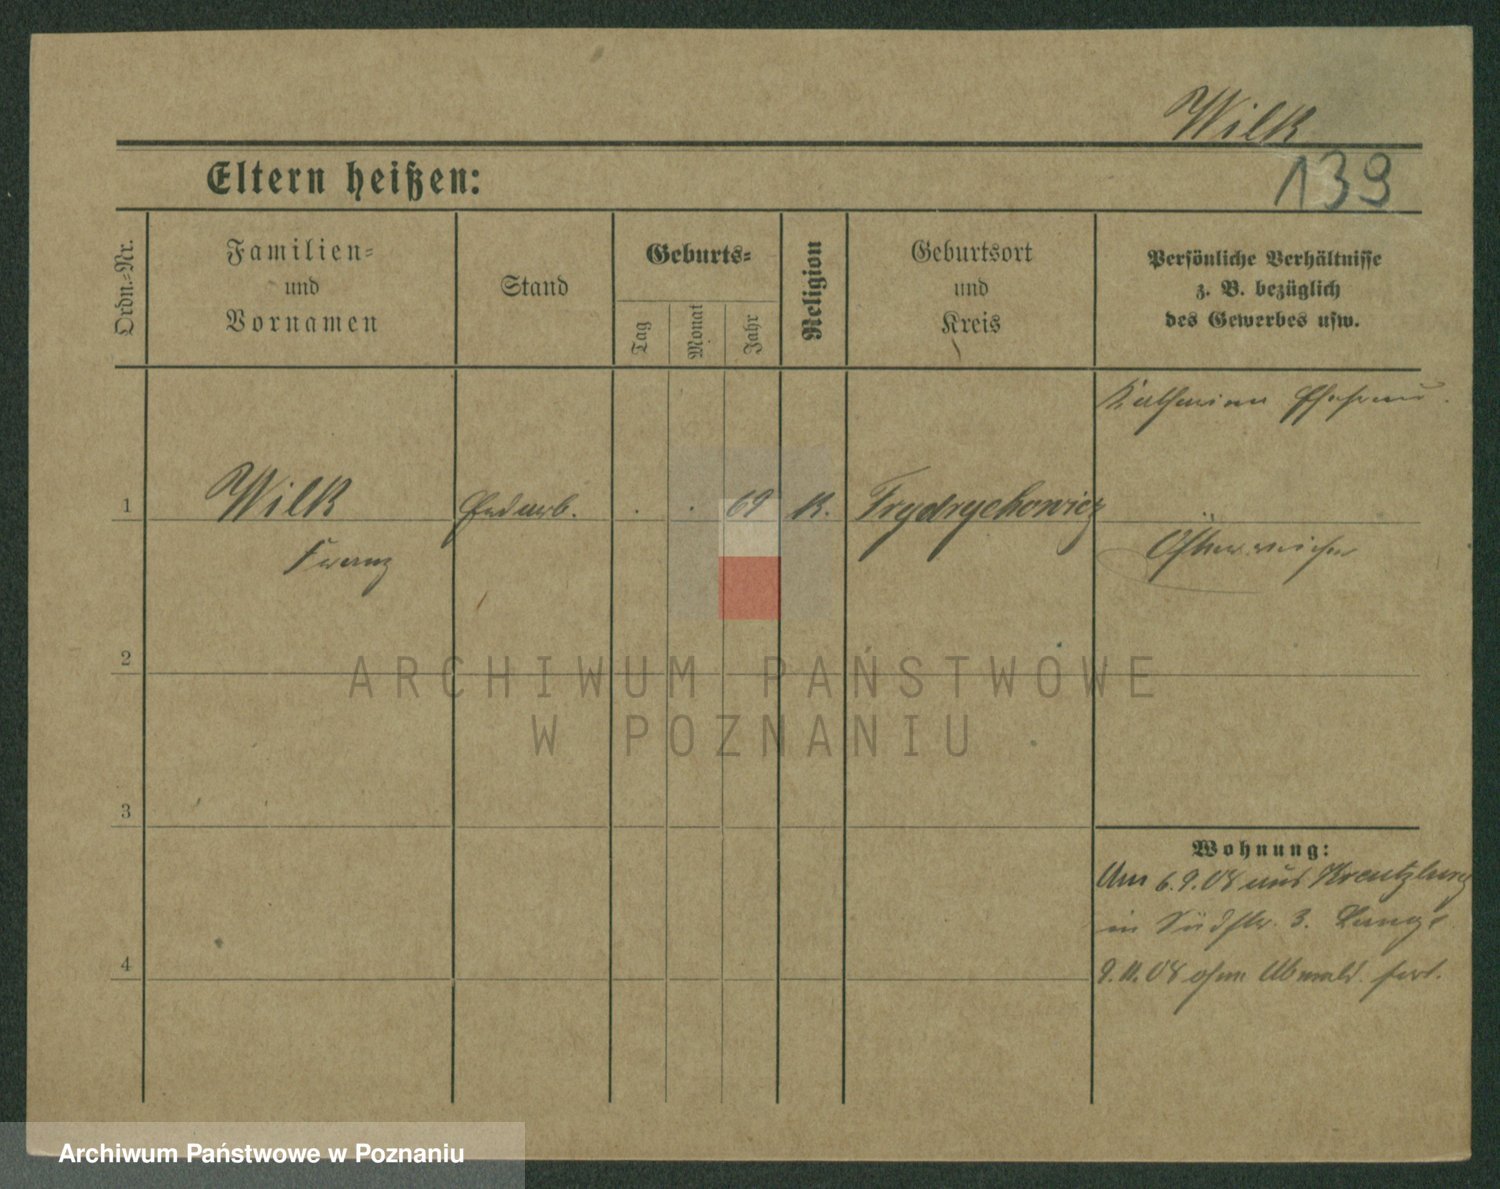 Wilk
139
Eltern heißen:
Ordn.-Nr.
Familien-
und
Vornamen
Stand
Geburts-
Tag
Monat
Jahr
Religion
Geburtsort
und
Kreis
Persönliche Verhältnisse
z. B. bezüglich
des Gewerbes usw.
Katharina
1
Wilk
Erdarb.
. . 69
K.
Frydrychowicz
Franz
Österreicher
ARCHIWUM PAŃSTWOWE
W POZNANIU
2
3
4
Wohnung:
Am 6.9.08 aus Kreutzburg
in Südstr. 3. Lange
9.11.08 ohne Abmeld. fort.
Archiwum Państwowe w Poznaniu